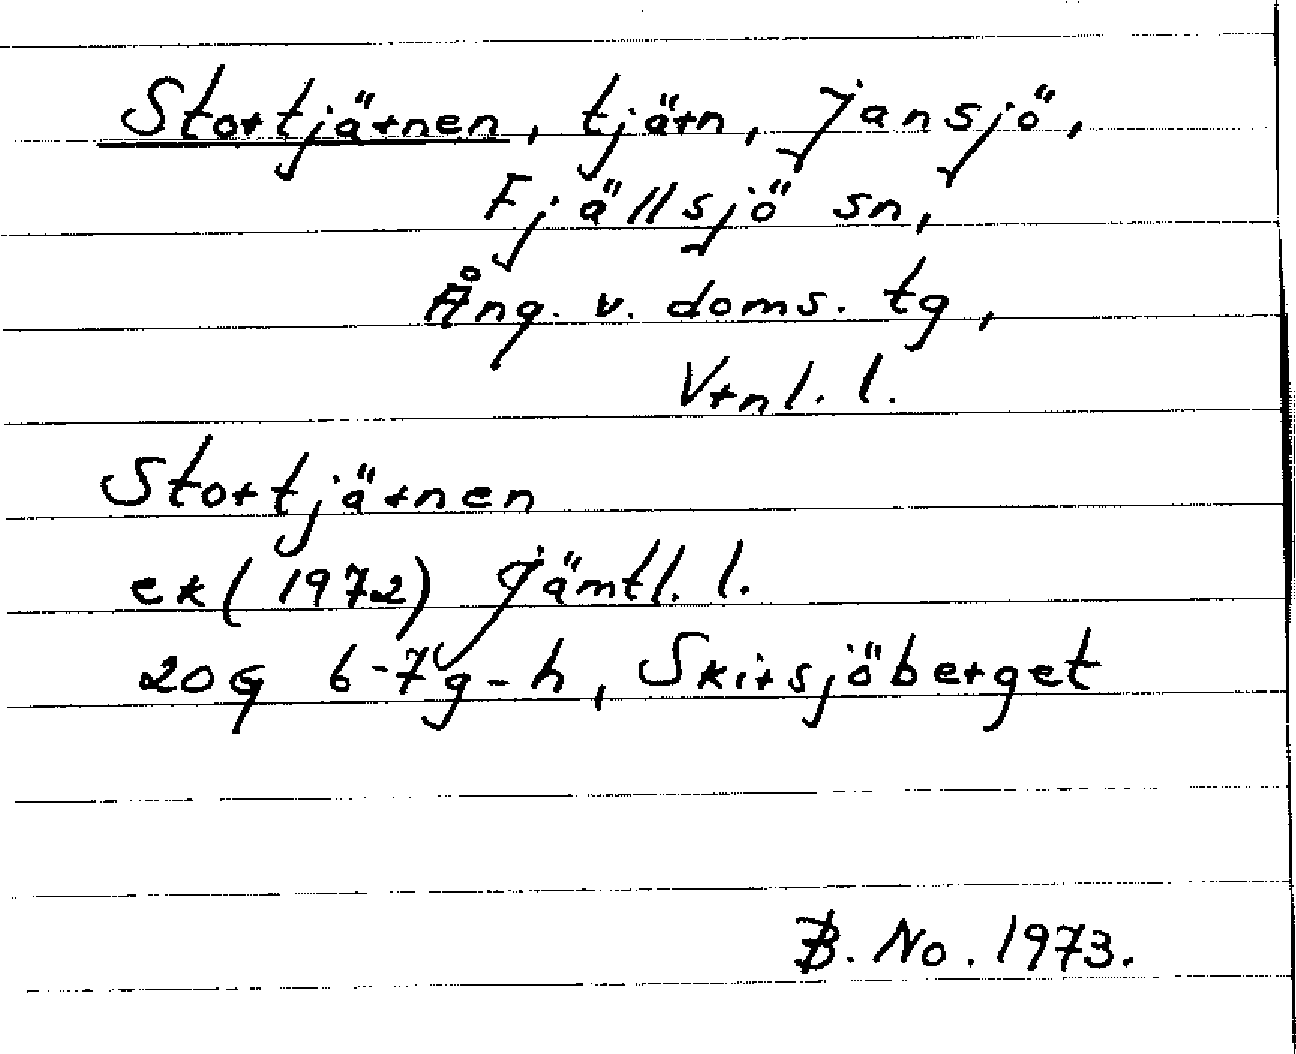 Stortjärnen, tjärn, Jansjö,
Fjällsjö sn,
Ång. v. doms. tg,
Vrnl. l.
Stortjärnen
ek (1972) Jämtl. l.
20G 6-7g-h, Skirsjöberget
B. No. 1973.